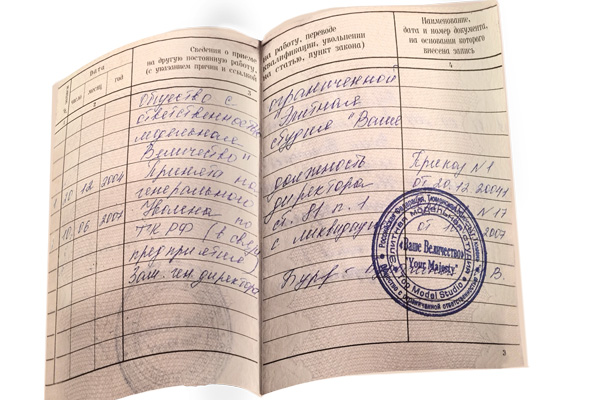 Сведения о приеме на работу, переводе
на другую постоянную работу, квалификации, увольнении
(с указанием причин и ссылкой на статью, пункт закона)
Наименование,
дата и номер документа,
на основании которого
внесена запись
Дата
число месяц год
2 3 4
Общество с ограниченной
ответственностью "Элитная
модельная студия "Ваше
Величество"
1 20 12 2004 Принята на должность Приказ N 1
генерального директора от 20.12.2004
10 06 2007 Уволена по ст. 81 п. 1 N 17
ТК РФ (в связи с ликвидацией от 2007
предприятия)
Зам. ген. директора В.
Российская Федерация, Тюменская
Элитная модельная студия
«Ваше Величество»
"Your Majesty"
Top Model Studio
с ограниченной ответственностью
3